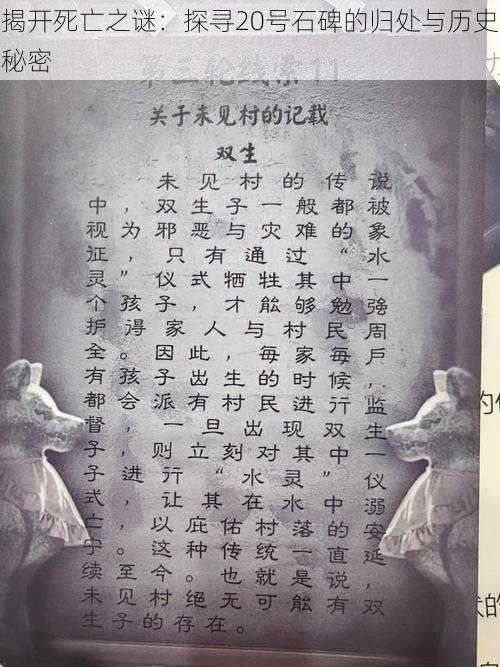 揭开死亡之谜：探寻20号石碑的归处与历史
秘密
第三轮线索11
关于未见村的记载
双生
未见村的传说
中，双生子一般都被
视为，邪恶与灾难的象
征，只有通过“水
灵”仪式牺牲其中一
个孩子，才能够勉强
护得家人与村民周
全。因此，每家每户，
有孩子出生的时候
都会派有村民进行监
督，一旦出现双生
子，则立刻对其中一
子进行“水灵”仪
式，让其在水中溺
亡，以庇佑村落安
宁。这种传统一直延
续至今。也就是说，
未见村绝无可能有双
生子的存在。